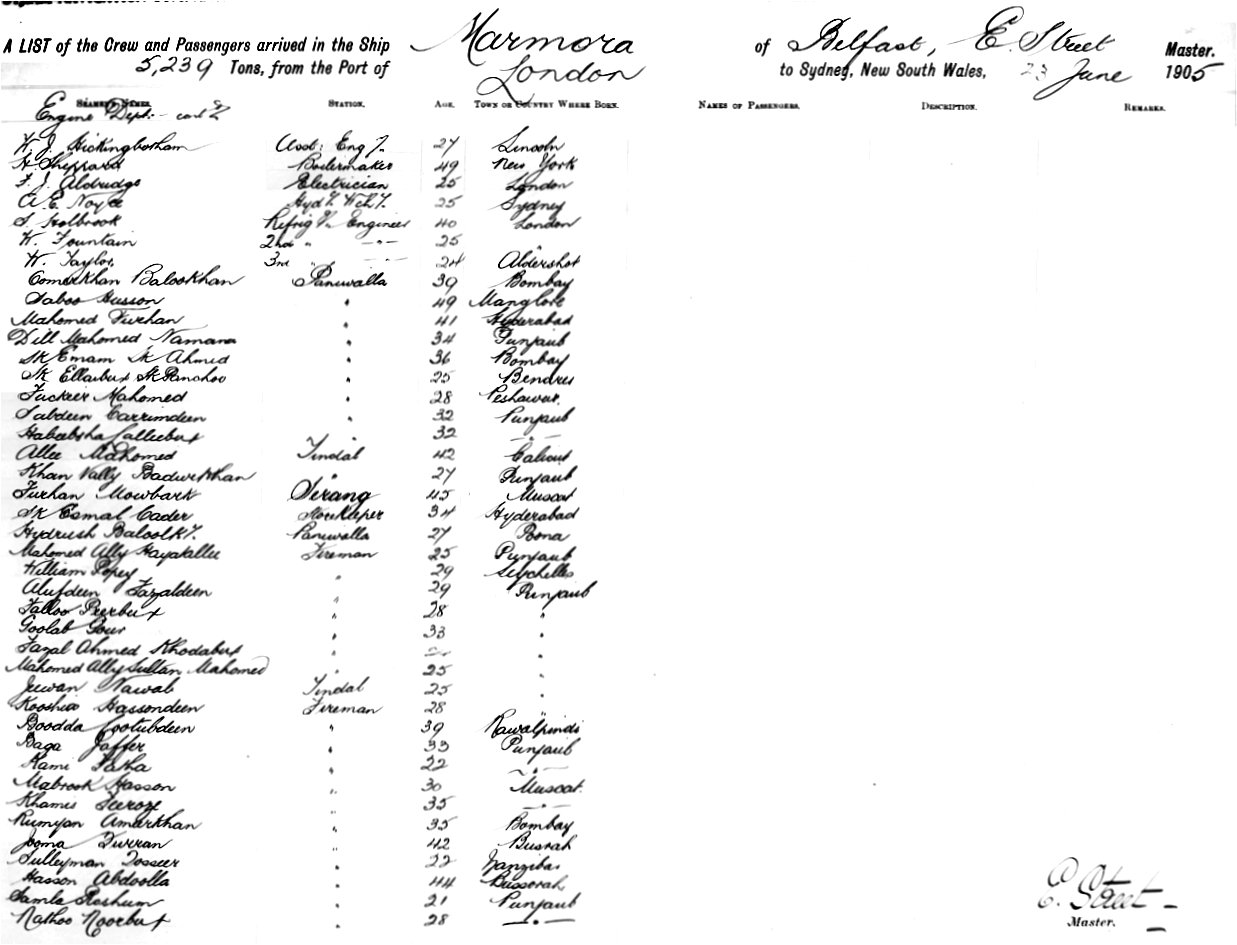 A LIST of the Crew and Passengers arrived in the Ship Marmora of Belfast, E. Street Master.
5,239 Tons, from the Port of London to Sydney, New South Wales, 23 June 1905
SEAMEN'S NAMES. STATION. AGE. TOWN OR COUNTRY WHERE BORN. NAMES OF PASSENGERS. DESCRIPTION. REMARKS.
Engine Dept:- cont'd
W. J. Hickingbotham Asst: Eng r. 27 Lincoln
H Sheppard Boilermaker 49 New York
F. J. Aldridge Electrician 25 London
A. E. Noyce 25 Sydney
S. Holbrook Refrig'g Engineer 40 London
W. Fountain 2nd " -"- 25 "
W. Taylor 3rd " -"- 24 Aldershot
Eomerkhan Balookhan Paniwalla 39 Bombay
Saboo Husson " 49 Manglore
Mahomed Furhan " 41 Hyderabad
Dill Mahomed Namana " 34 Punjaub
Sk Emam Sk Ahmed " 36 Bombay
Sk Ellaibux Sk Ranchoo " 25 Benares
Fuckeer Mahomed " 28 Peshawur.
Sabdeen Carrimdeen " 32 Punjaub
Habeebsha Calleebux " 32 -"-
Allee Mahomed Tindal 42 Calicut
Khan Vally Badurkhan " 27 Punjaub
Furhan Mowbark Serang 45 Muscat
Sk Esmal Cader Storekeeper 34 Hyderabad
Hydrush Baloolk'r. Paniwalla 27 Pona
Mahomed Ally Hayatallee Fireman 25 Punjaub
William Popey " 29 Seychelles
Alufdeen Fazaldeen " 29 Punjaub
Falloo Peerbux " 28 "
Goolab Gour " 33 "
Fazal Ahmed Khodabux " -"- "
Mahomed Ally Sultan Mahomed " 25 "
Jeewan Nawab Tindal 25 "
Kooshia Hassondeen Fireman 28 "
Boodda Cootubdeen " 39 Rawalpindi
Baga Jaffer " 33 Punjaub
Rami Fatha " 22 -"-
Mabrook Hasson " 30 Muscat.
Khamis Feeroze " 35 -"-
Rumyan Amurkhan " 35 Bombay
Jooma Furran " 42 Busrah
Sulleyman Dosseer " 22 Zanzibar
Hasson Abdoolla " 44 Bussorah
Samla Roshun " 21 Punjaub
Nathoo Noorbux " 28 -"-
E. Street
Master.